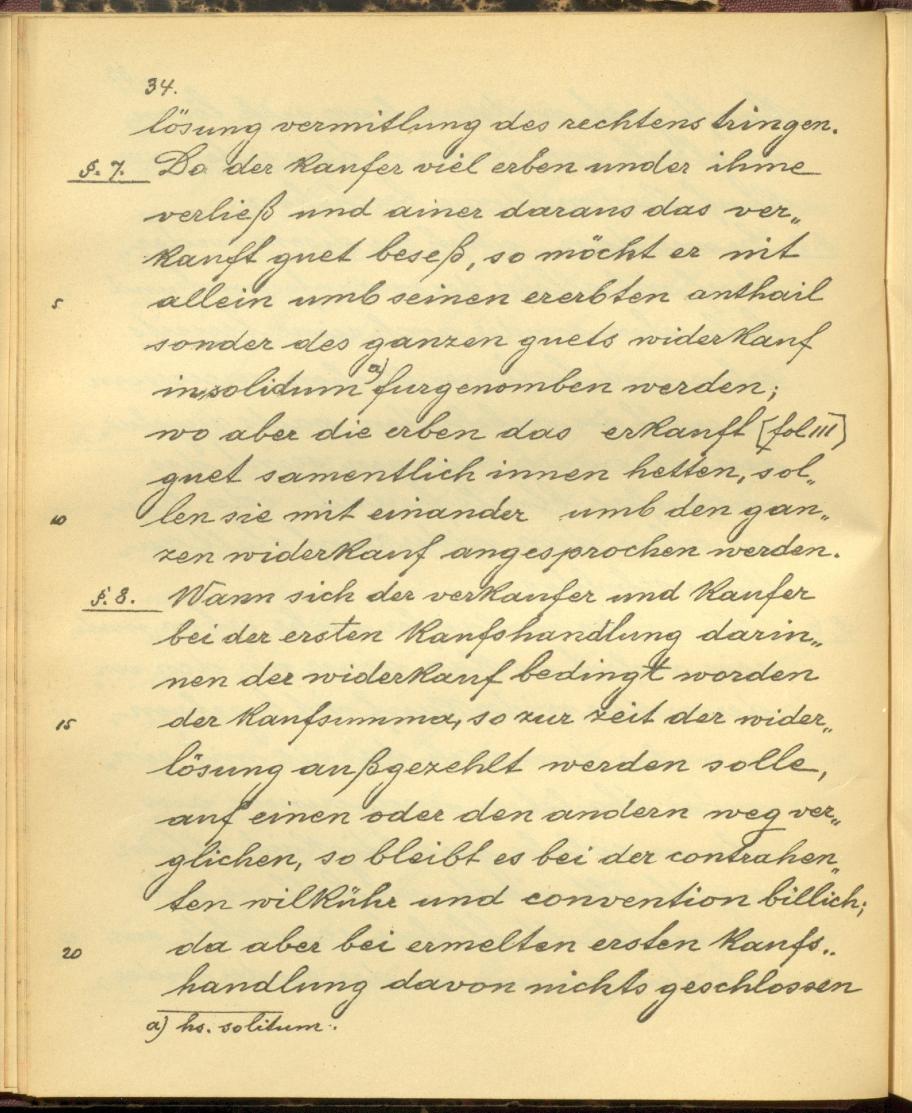 34.
lösung vermitlung des rechtens bringen.
§. 7. Da der kaufer viel erben under ihme
verließ und ainer daraus das ver„
kauft guet beseß, so möcht er nit
5 allein umb seinen ererbten anthail
sonder des ganzen guets widerkauf
in solidum a) furgenomben werden;
wo aber die erben das erkauft [fol III]
guet samentlich innen hetten, sol„
10 len sie mit einander umb den gan„
zen widerkauf angesprochen werden.
§. 8. Wann sich der verkaufer und kaufer
bei der ersten kaufshandlung darin„
nen der widerkauf bedingt worden
15 der kaufsumma, so zur zeit der wider„
lösung außgezehlt werden solle,
auf einen oder den andern weg ver„
glichen, so bleibt es bei der contrahen„
ten wilkühr und convention billich;
20 da aber bei ermelten ersten kaufs..
handlung davon nichts geschlossen
a) hs. solitum.